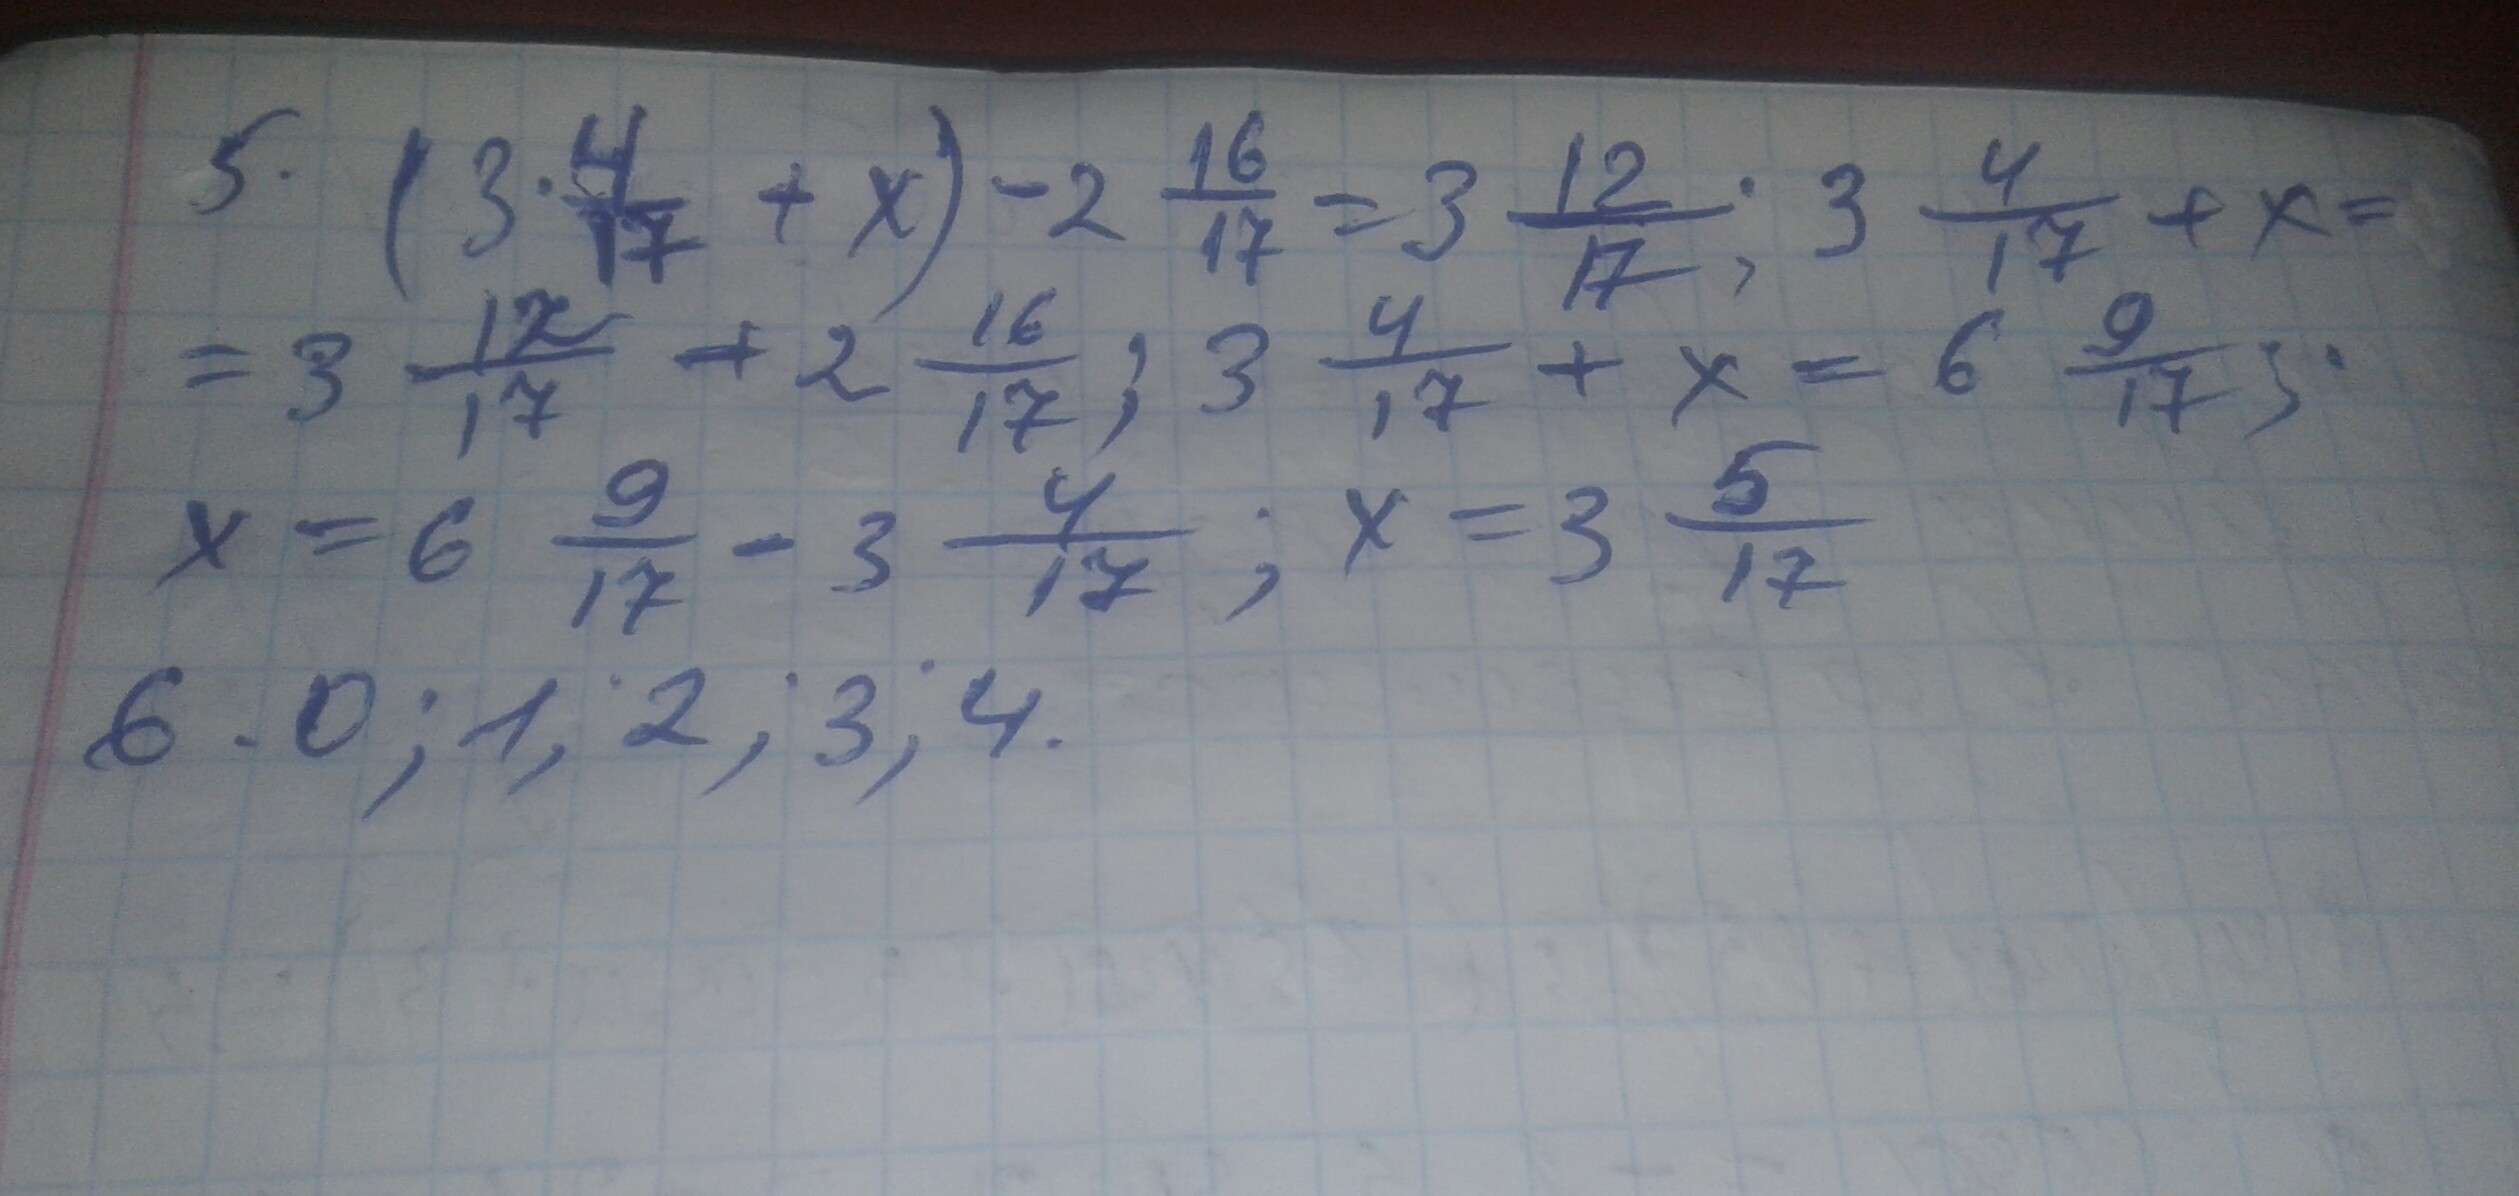 5. (3 · 4/17 + x) - 2 16/17 = 3 12/17; 3 4/17 + x =
= 3 12/17 + 2 16/17; 3 4/17 + x = 6 9/17;
x = 6 9/17 - 3 4/17; x = 3 5/17
6. 0; 1; 2; 3; 4.